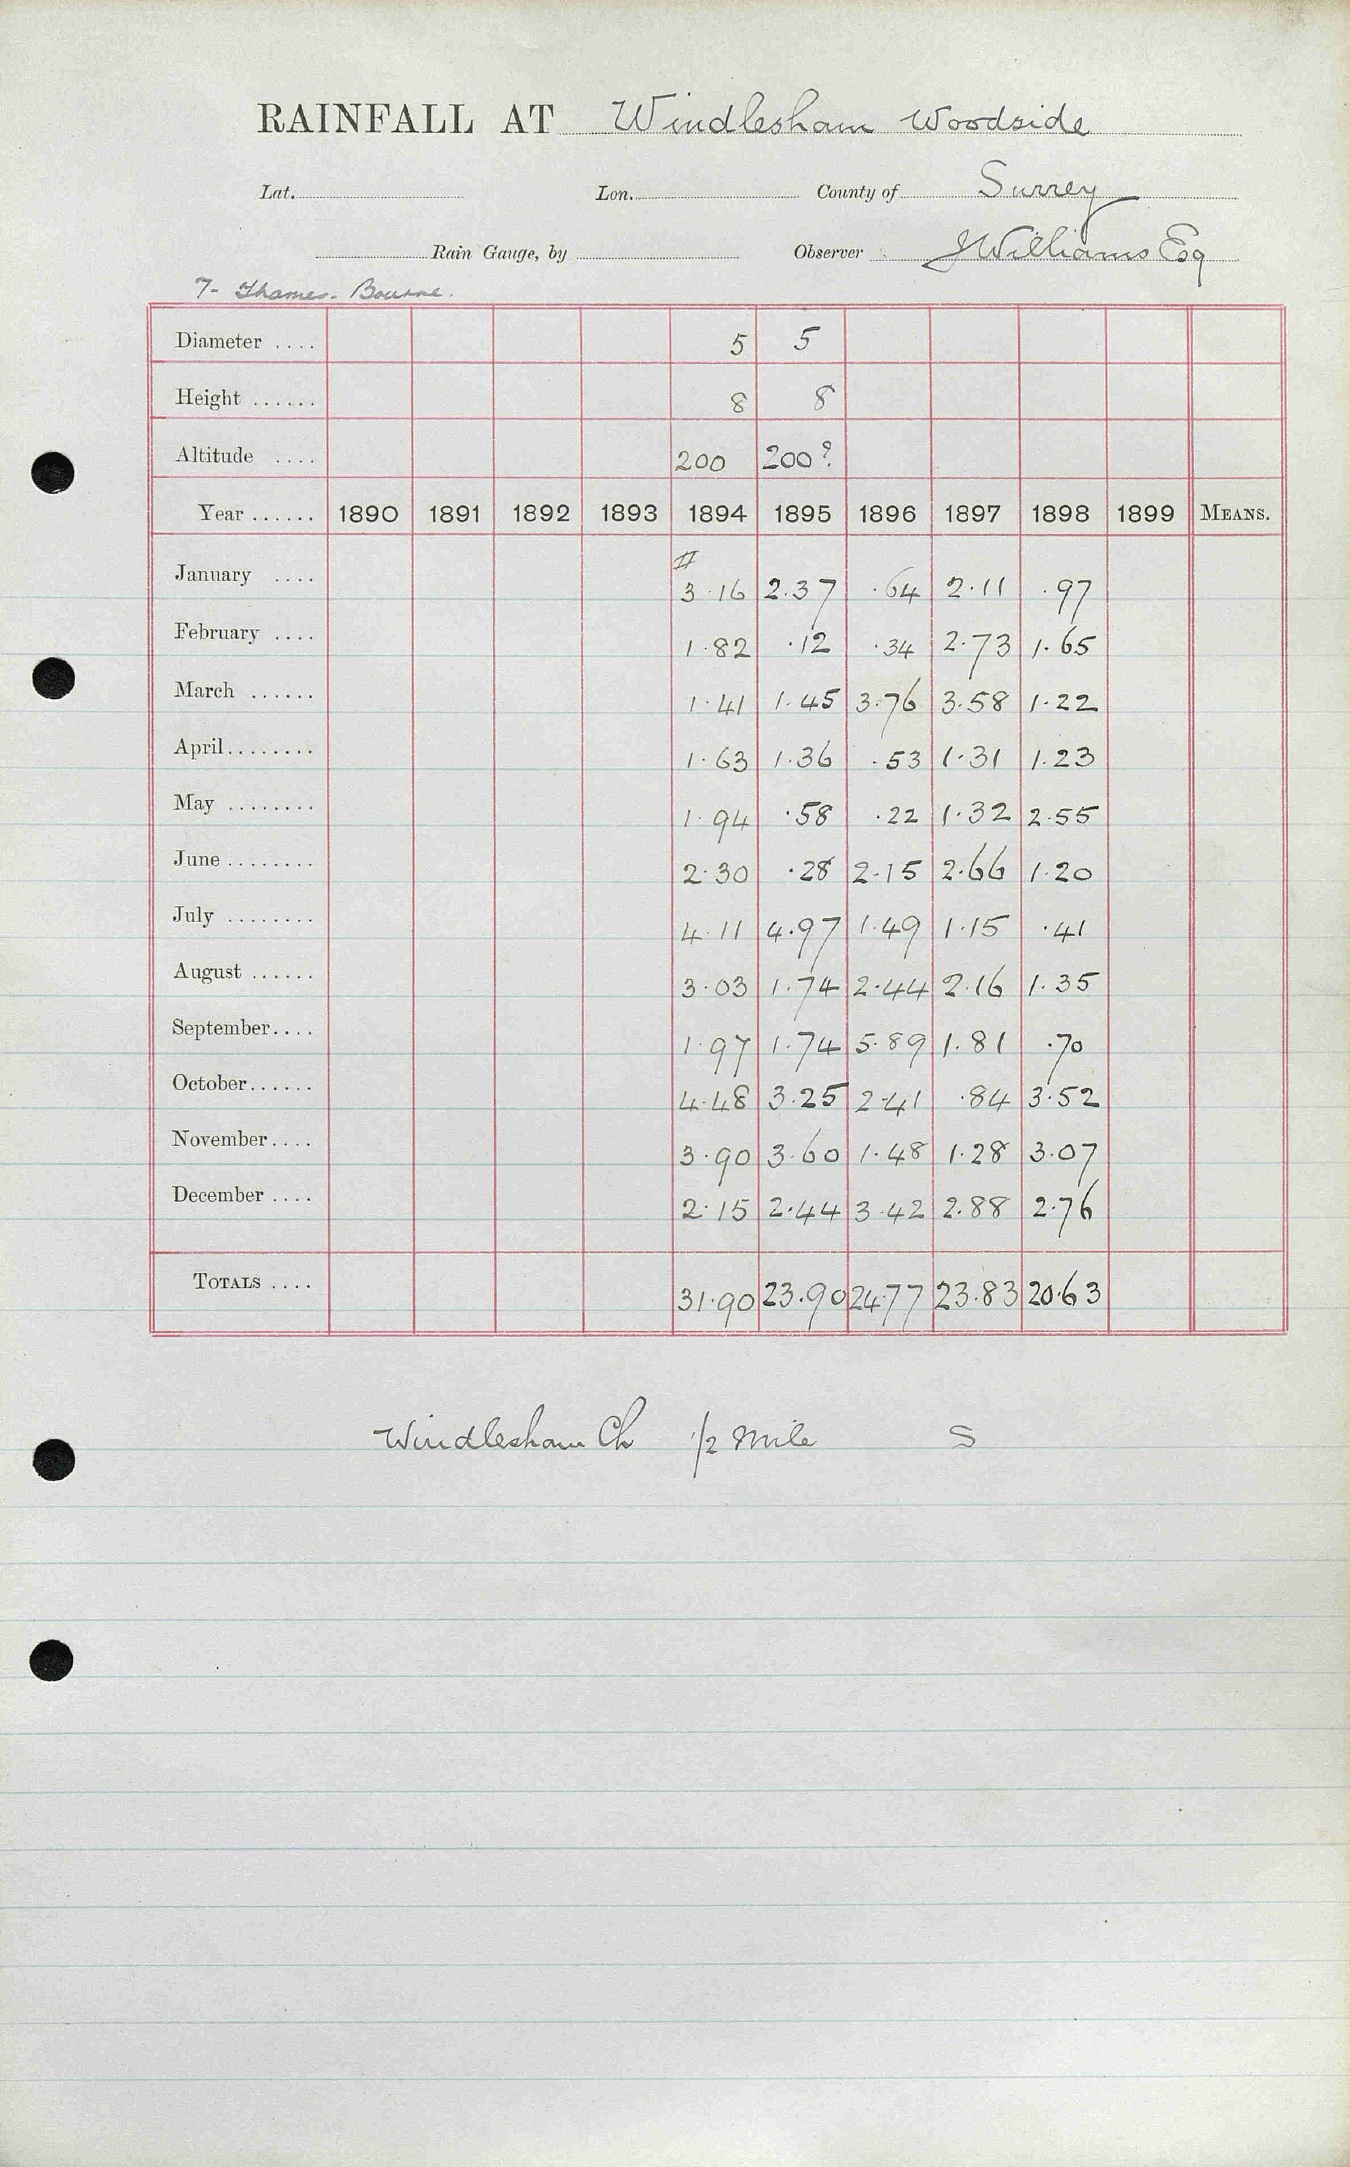 RAINFALL AT Windlesham Woodside
Lat. Lon. County of Surrey
Rain Gauge, by Observer J Williams Esq
7- Thames. Bourne.
Diameter .... 5 5
Height ...... 8 8
Altitude .... 200 200?
Year ...... 1890 1891 1892 1893 1894 1895 1896 1897 1898 1899 MEANS.
January .... 3.16 2.37 .64 2.11 .97
February .... 1.82 .12 .34 2.73 1.65
March ...... 1.41 1.45 3.76 3.58 1.22
April........ 1.63 1.36 .53 1.31 1.23
May ........ 1.94 .58 .22 1.32 2.55
June ........ 2.30 .28 2.15 2.66 1.20
July ........ 4.11 4.97 1.49 1.15 .41
August ...... 3.03 1.74 2.44 2.16 1.35
September.... 1.97 1.74 5.89 1.81 .70
October...... 4.48 3.25 2.41 .84 3.52
November.... 3.90 3.60 1.48 1.28 3.07
December .... 2.15 2.44 3.42 2.88 2.76
TOTALS .... 31.90 23.90 24.77 23.83 20.63
Windlesham Ch 1/2 Mile S